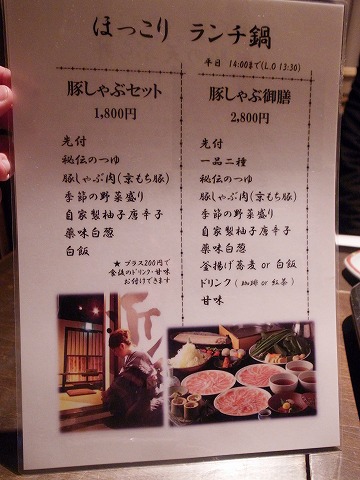 ほっこり ランチ鍋
平日 14:00まで(L.O 13:30)
豚しゃぶセット
1,800円
先付
秘伝のつゆ
豚しゃぶ肉(京もち豚)
季節の野菜盛り
自家製柚子唐辛子
薬味白葱
白飯
★ プラス200円で
食後のドリンク・甘味
お付けできます
豚しゃぶ御膳
2,800円
先付
一品二種
秘伝のつゆ
豚しゃぶ肉(京もち豚)
季節の野菜盛り
自家製柚子唐辛子
薬味白葱
釜揚げ蕎麦 or 白飯
ドリンク (珈琲 or 紅茶)
甘味